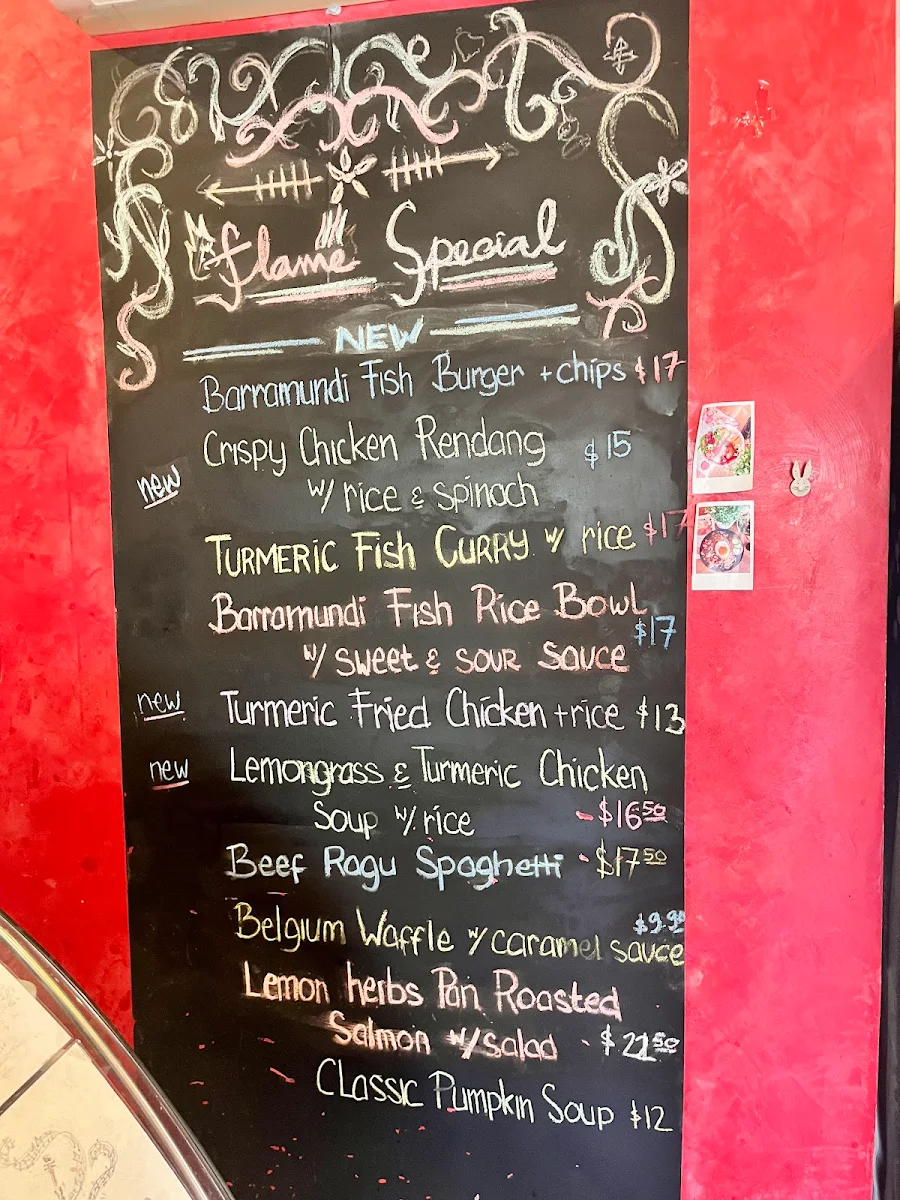 Flame Special
NEW
Barramundi Fish Burger + chips $17
Crispy Chicken Rendang $15
new
w/ rice & spinach
TURMERIC Fish CURRY w/ rice $17
Barramundi Fish Rice Bowl
$17
w/ sweet & sour sauce
new Turmeric Fried Chicken + rice $13
new Lemongrass & Turmeric Chicken
Soup w/ rice - $16.50
Beef Ragu Spaghetti - $17.50
$9.90
Belgium Waffle w/ caramel sauce
Lemon herbs Pan Roasted
Salmon w/ salad - $21.50
Classic Pumpkin Soup $12